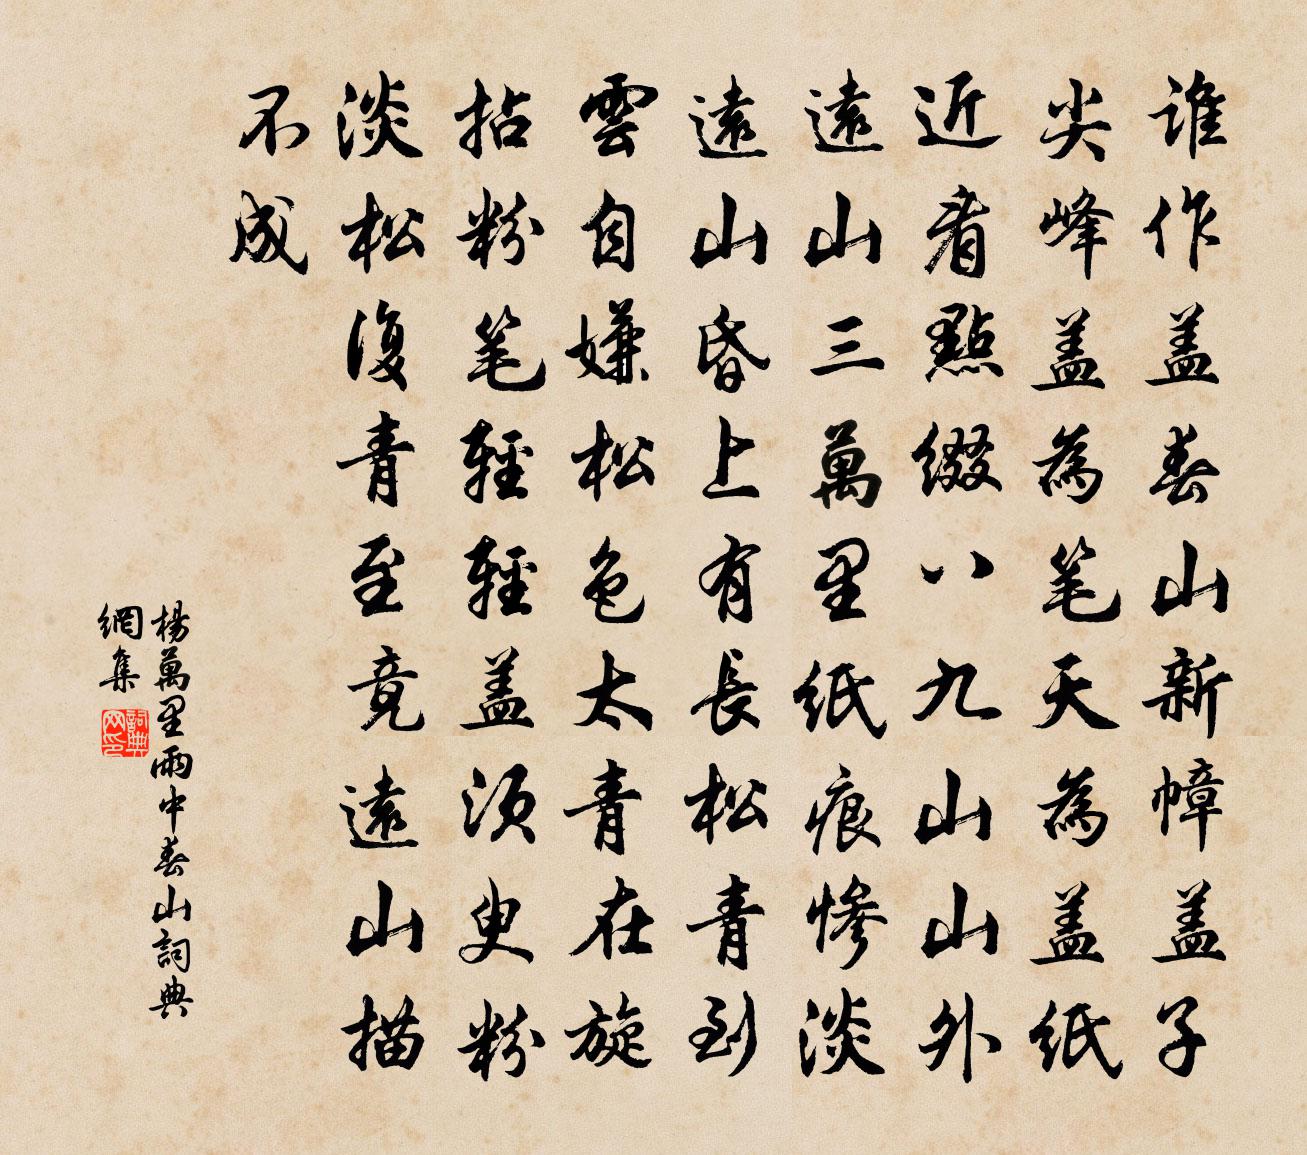 誰作盖春山新幛盖子
尖峰盖為笔天為盖紙
近看點綴八九山山外
遠山三萬里紙痕慘淡
遠山昏上有長松青到
雲自嫌松色太青在旋
拈粉笔輕輕盖須臾粉
淡松復青至竟遠山描
不成
楊萬里雨中春山詞典
網集
詞典
网印